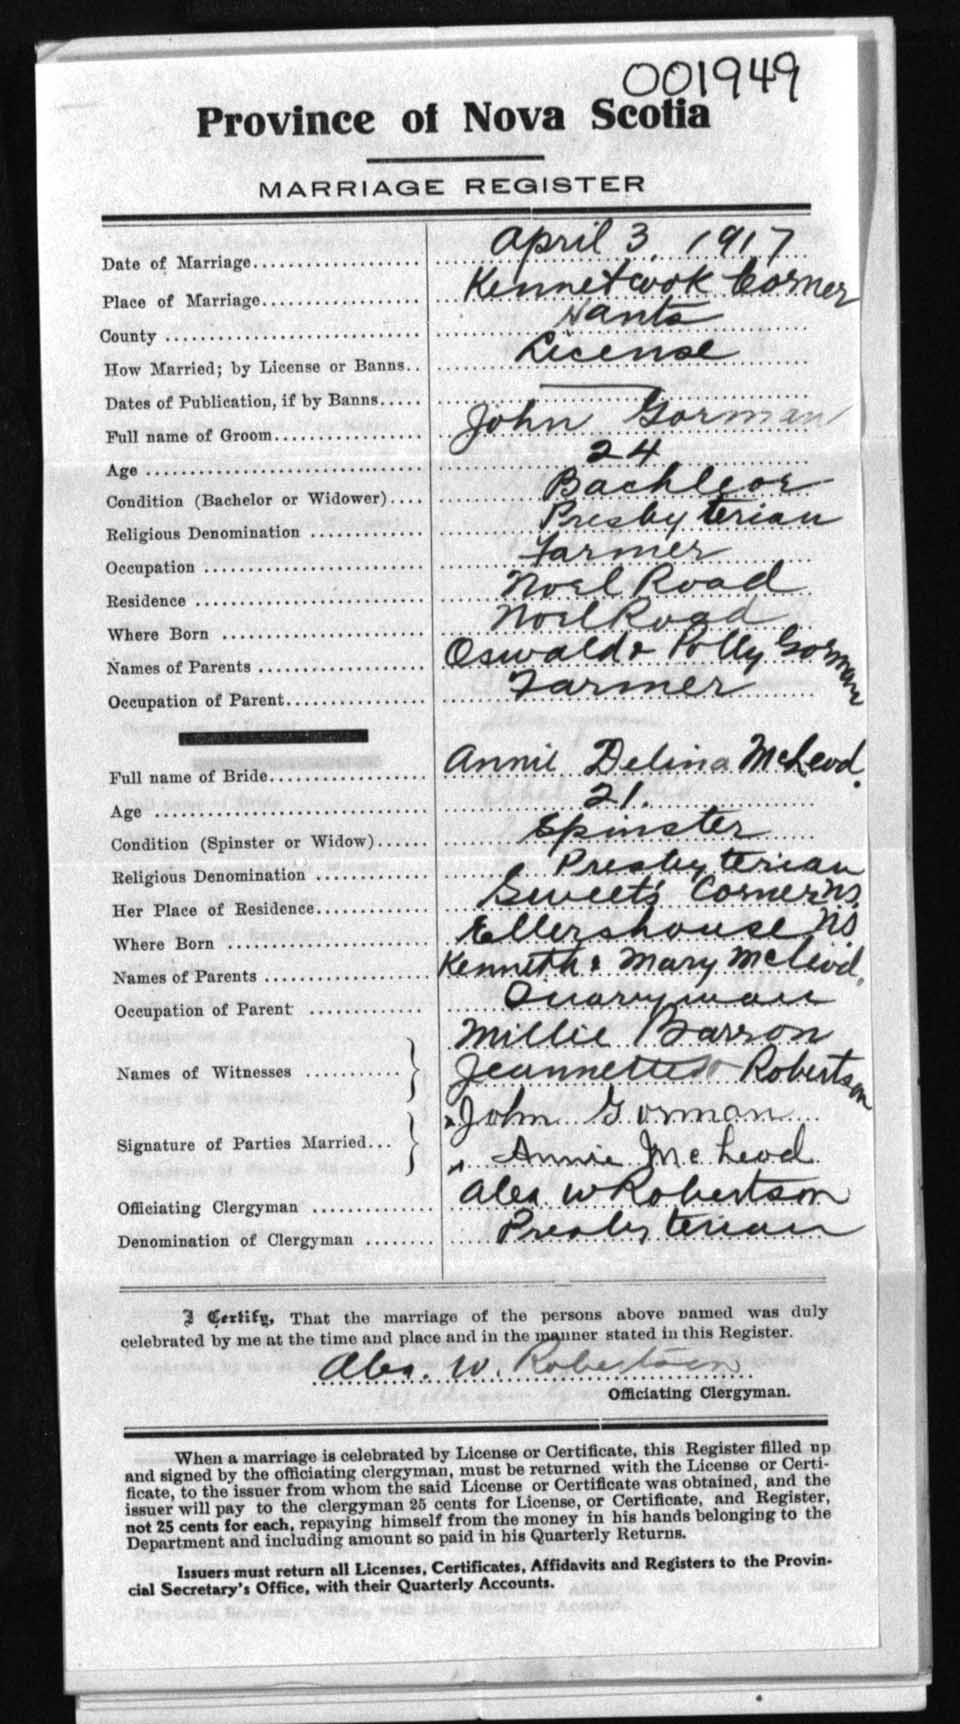 001949
Province of Nova Scotia
MARRIAGE REGISTER
Date of Marriage.................... April 3, 1917
Place of Marriage................... Kennetcook Corner
County .............................. Hants
How Married; by License or Banns.. License
Dates of Publication, if by Banns..... —
Full name of Groom.................. John Gorman
Age ................................. 24
Condition (Bachelor or Widower).... Bachleor
Religious Denomination ............. Presbyterian
Occupation .......................... Farmer
Residence ........................... Noel Road
Where Born ........................ Noel Road
Names of Parents .................... Oswald & Polly Gorman
Occupation of Parent................. Farmer
Full name of Bride................... Annie Delina McLeod.
Age ................................. 21.
Condition (Spinster or Widow)...... Spinster
Religious Denomination ............. Presbyterian
Her Place of Residence.............. Sweets Corner NS.
Where Born ........................ Ellershouse NS
Names of Parents .................... Kenneth & Mary McLeod.
Occupation of Parent .............. Quarryman
Millie Barron
Names of Witnesses ........... Jeannette Robertson
x John Gorman
Signature of Parties Married...
x Annie McLeod
Officiating Clergyman .............. Alex W Robertson
Denomination of Clergyman ........ Presbyterian
I Certify, That the marriage of the persons above named was duly
celebrated by me at the time and place and in the manner stated in this Register.
Alex. W. Robertson
Officiating Clergyman.
When a marriage is celebrated by License or Certificate, this Register filled up
and signed by the officiating clergyman, must be returned with the License or Certi-
ficate, to the issuer from whom the said License or Certificate was obtained, and the
issuer will pay to the clergyman 25 cents for License, or Certificate, and Register,
not 25 cents for each, repaying himself from the money in his hands belonging to the
Department and including amount so paid in his Quarterly Returns.
Issuers must return all Licenses, Certificates, Affidavits and Registers to the Provin-
cial Secretary's Office, with their Quarterly Accounts.